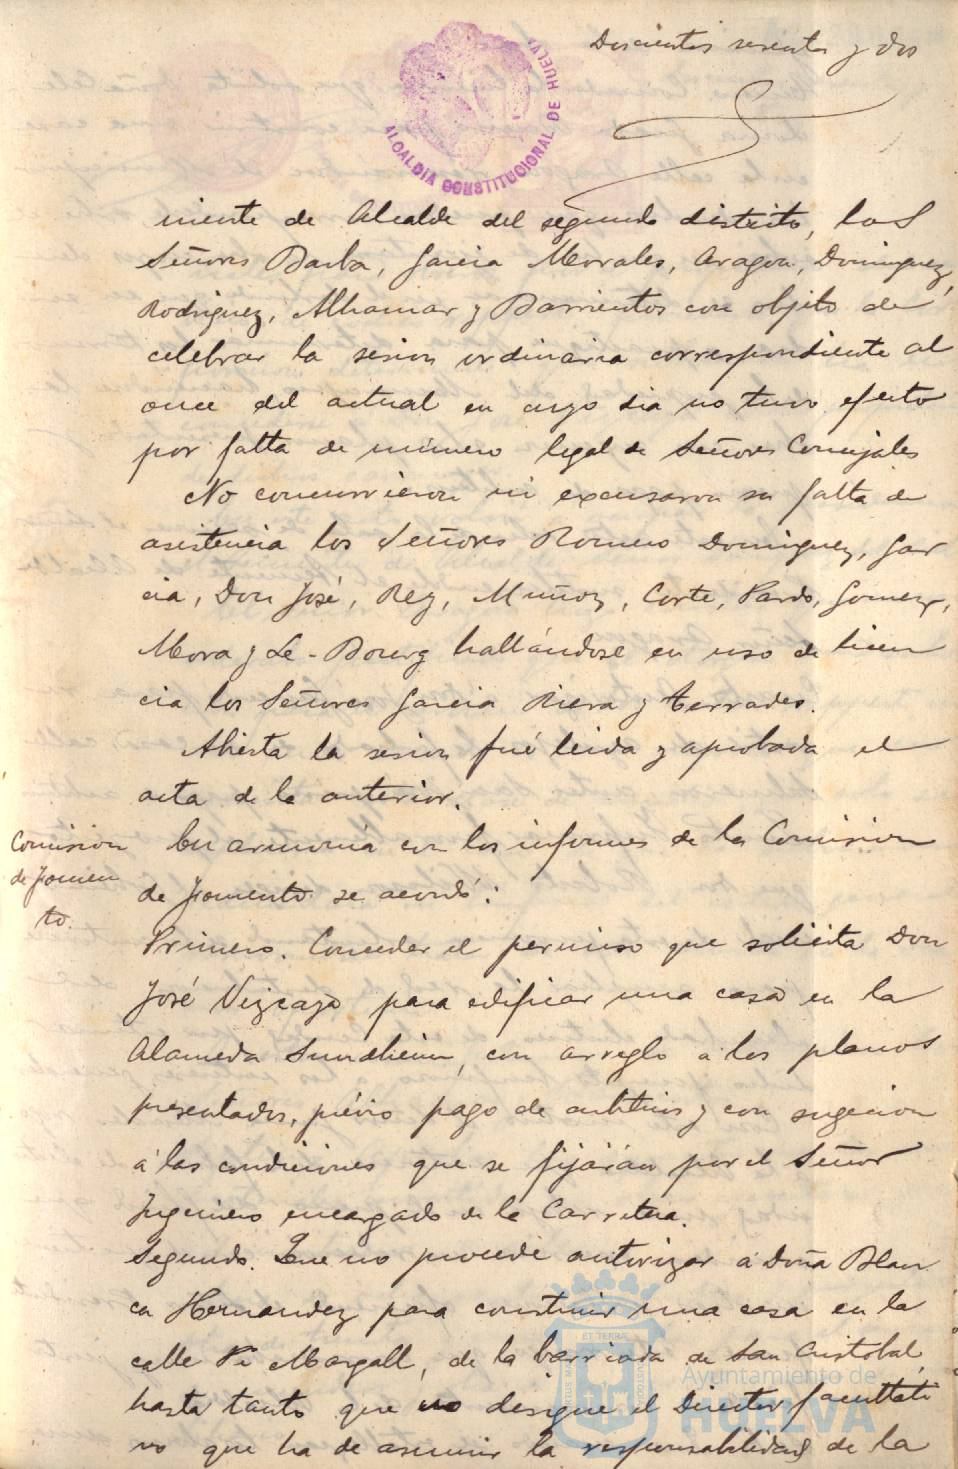 Doscientos sesenta y dos
ALCALDIA CONSTITUCIONAL DE HUELVA
niente de Alcalde del segundo distrito, los
Señores Barba, Garcia Morales, Aragon, Dominguez,
Rodriguez, Alhamar y Barrientos con objeto de
celebrar la sesion ordinaria correspondiente al
once del actual en cuyo dia no tuvo efecto
por falta de número legal de Señores Concejales
No concurrieron ni excusaron su falta de
asistencia los Señores Romero Dominguez, Gar
cia, Don José, Rey, Muñoz, Corte, Pardo, Gomez,
Mora y Le-Bourg hallándose en uso de licen
cia los Señores Garcia Riera y Terrades.
Abierta la sesion fué leida y aprobada el
acta de la anterior.
Comision
de Fomen
to.
En armonia con los informes de la Comision
de Fomento se acordó:
Primero. Conceder el permiso que solicita Don
José Vizcayo para edificar una casa en la
Alameda Sundheim, con arreglo a los planos
presentados, prévio pago de arbitrios y con sugecion
á las condiciones que se fijarán por el Señor
Ingeniero encargado de la Carretera.
Segundo. Que no procede autorizar á Doña Blan
ca Hernandez para construir una casa en la
calle Pi Margall, de la barriada de San Cristobal,
hasta tanto que no designe el Director facultati
vo que ha de asumir la responsabilidad de la
ET TERRA
Ayuntamiento de
HUELVA